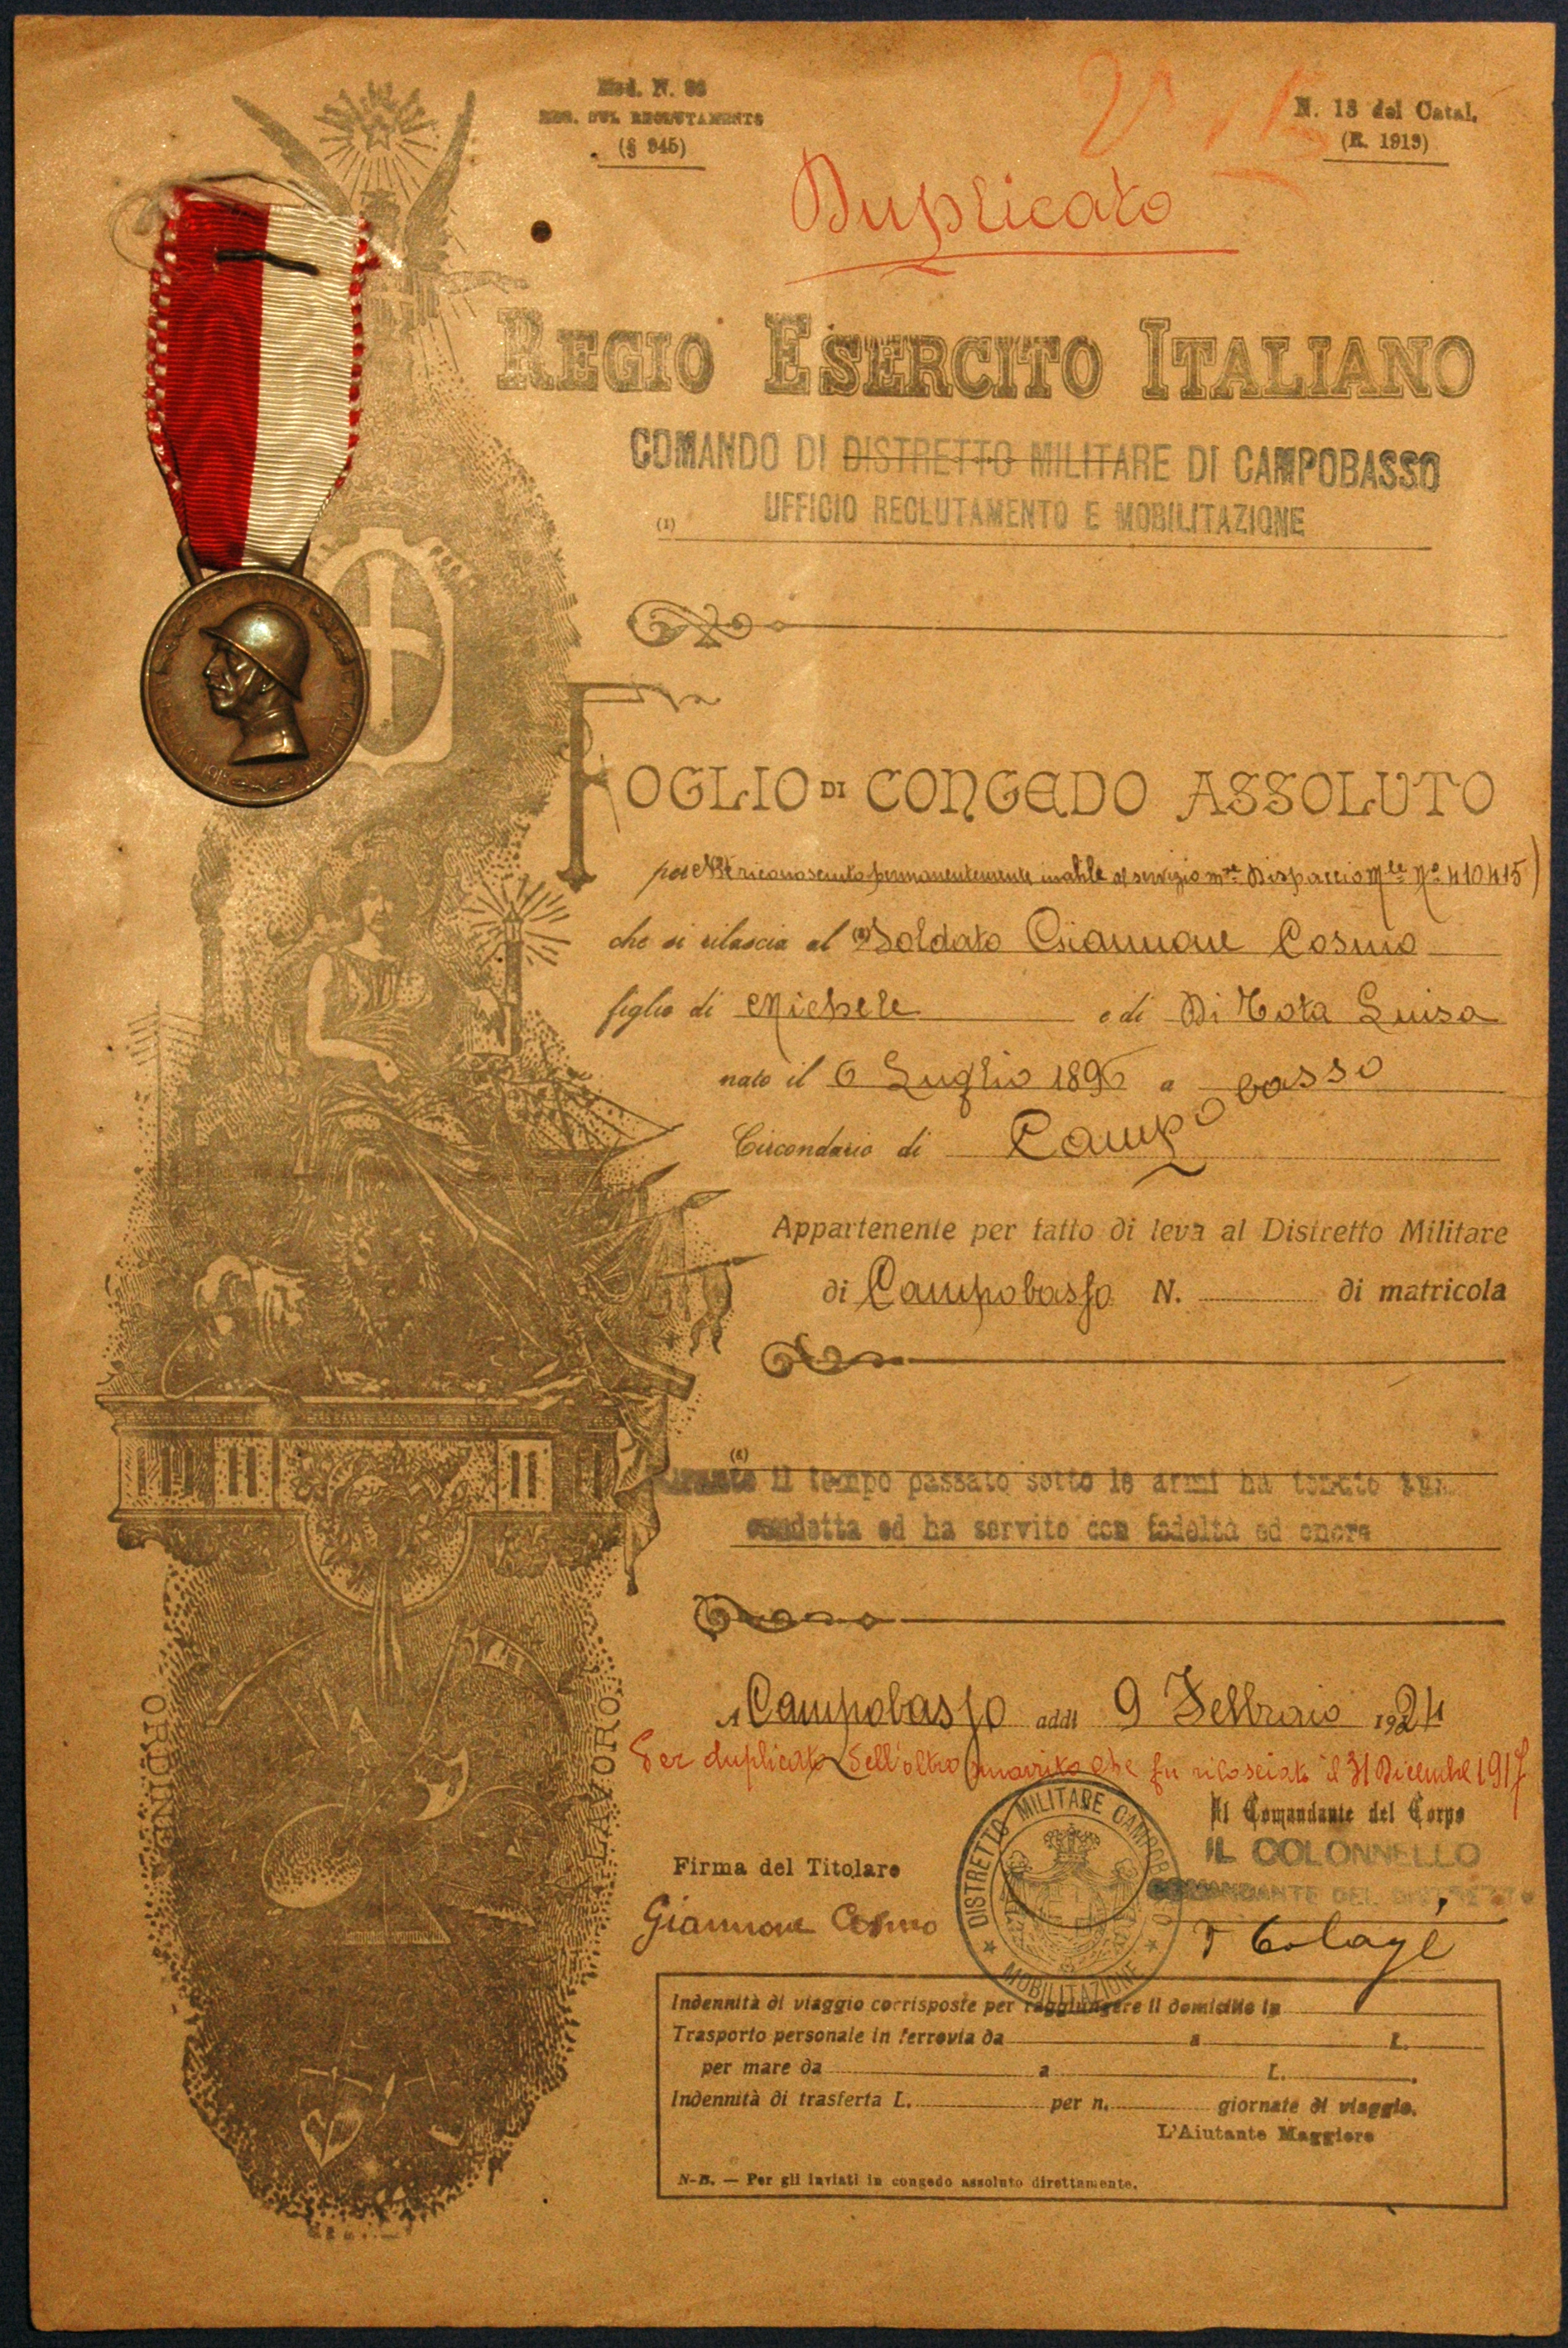 Mod. N. 96
REG. SUL RECLUTAMENTO
(§ 945)
N. 13 del Catal.
(R. 1919)
Duplicato
REGIO ESERCITO ITALIANO
COMANDO DI DISTRETTO MILITARE DI CAMPOBASSO
UFFICIO RECLUTAMENTO E MOBILITAZIONE
(1)
FOGLIO DI CONGEDO ASSOLUTO
per riconosciuto permanentemente inabile al servizio Dispaccio Nº 410415)
che si rilascia al Soldato Giannone Cosmo
figlio di Michele e di Di Tota Luisa
nato il 6 Luglio 1896 a
Circondario di Campobasso
Appartenente per fatto di leva al Distretto Militare
di Campobasso N. di matricola
Durante il tempo passato sotto le armi ha tenuto
condotta ed ha servito con fedeltà ed onore
A Campobasso addì 9 Febbraio 1924
Per duplicato dell'altro smarrito che fu rilasciato il 31 Dicembre 1917
Il Comandante del Corpo
IL COLONNELLO
COMANDANTE DEL DISTRETTO
Firma del Titolare
Giannone Cosmo
DISTRETTO MILITARE CAMPOBASSO
MOBILITAZIONE
ORDINE
LAVORO
Indennità di viaggio corrisposte per raggiungere il domicilio in
Trasporto personale in ferrovia da a L.
per mare da a L.
Indennità di trasferta L. per n. giornate di viaggio.
L'Aiutante Maggiore
N-B. — Per gli inviati in congedo assoluto direttamente.